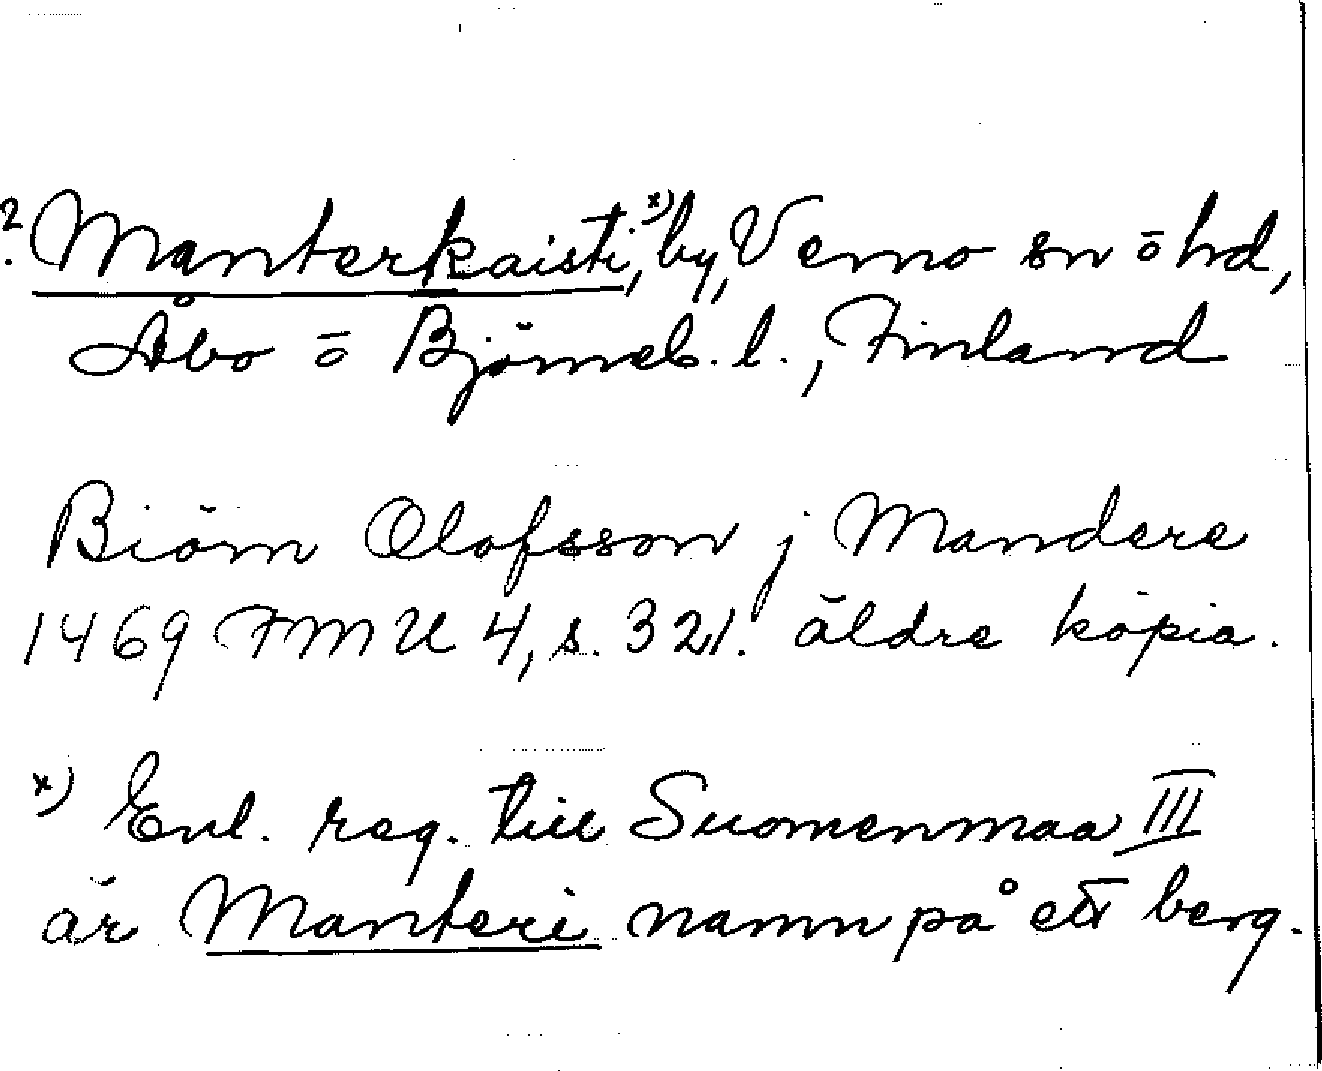 ? Manterkaisti,ˣ⁾ by, Vemo sn ō hd,
Åbo ō Björneb. l., Finland
Biörn Olofsson j Mandere
1469 FMU 4, s. 321. äldre kopia.
ˣ⁾ Enl. reg. till Suomenmaa III
är Manteri namn på ett berg.